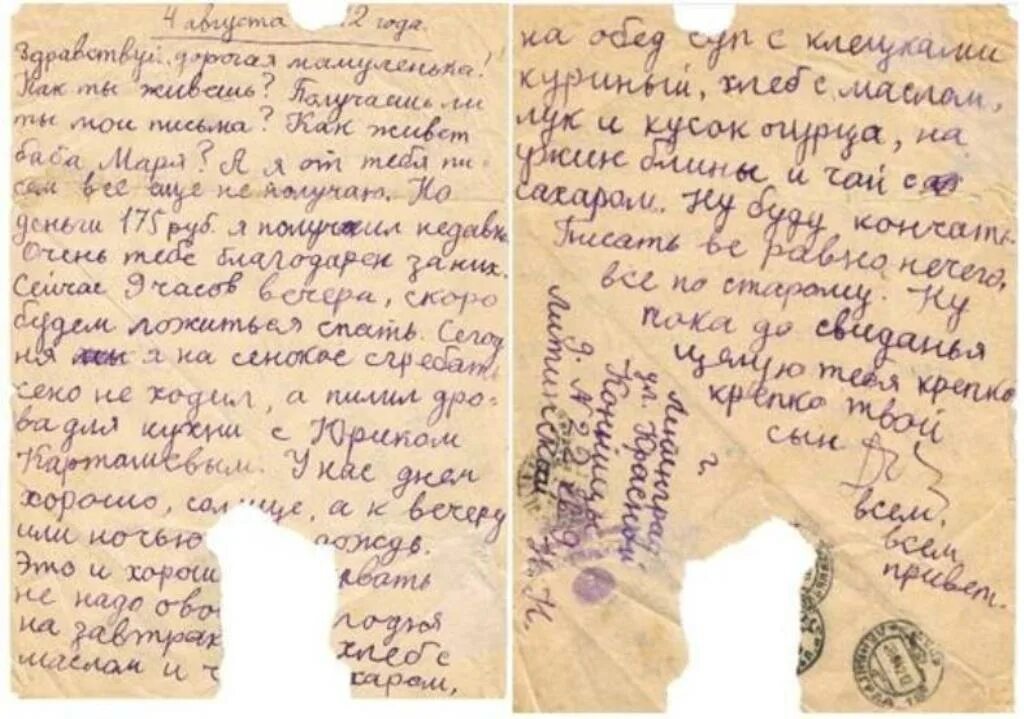 4 августа 2 года.
Здравствуй, дорогая мамуленька!
Как ты живешь? Получаешь ли
ты мои письма? Как живет
баба Маря? А я от тебя пи-
сем все еще не получаю. Но
деньги 175 руб. я получил недавно
Очень тебе благодарен за них.
Сейчас 9 часов вечера, скоро
будем ложиться спать. Сегод
ня я на сенокос сгребать
сено не ходил, а пилил дро-
ва для кухни с Юриком
Карташевым. У нас днем
хорошо, солнце, а к вечеру
или ночью дождь.
Это и хорош вать
не надо ово годня
на завтрак хлеб с
маслом и ч харом,
на обед суп с клецками
куриный, хлеб с маслом,
лук и кусок огурца, на
ужин блины и чай с
сахаром. Ну буду кончать
Писать ве равно нечего,
все по старому. Ну
пока до свиданья
целую тебя крепко
крепко твой
сын
всем,
всем
привет.
г. Ленинград
ул. Красной
Конницы
д. № 22 кв 9
Литинской
Н. Н.